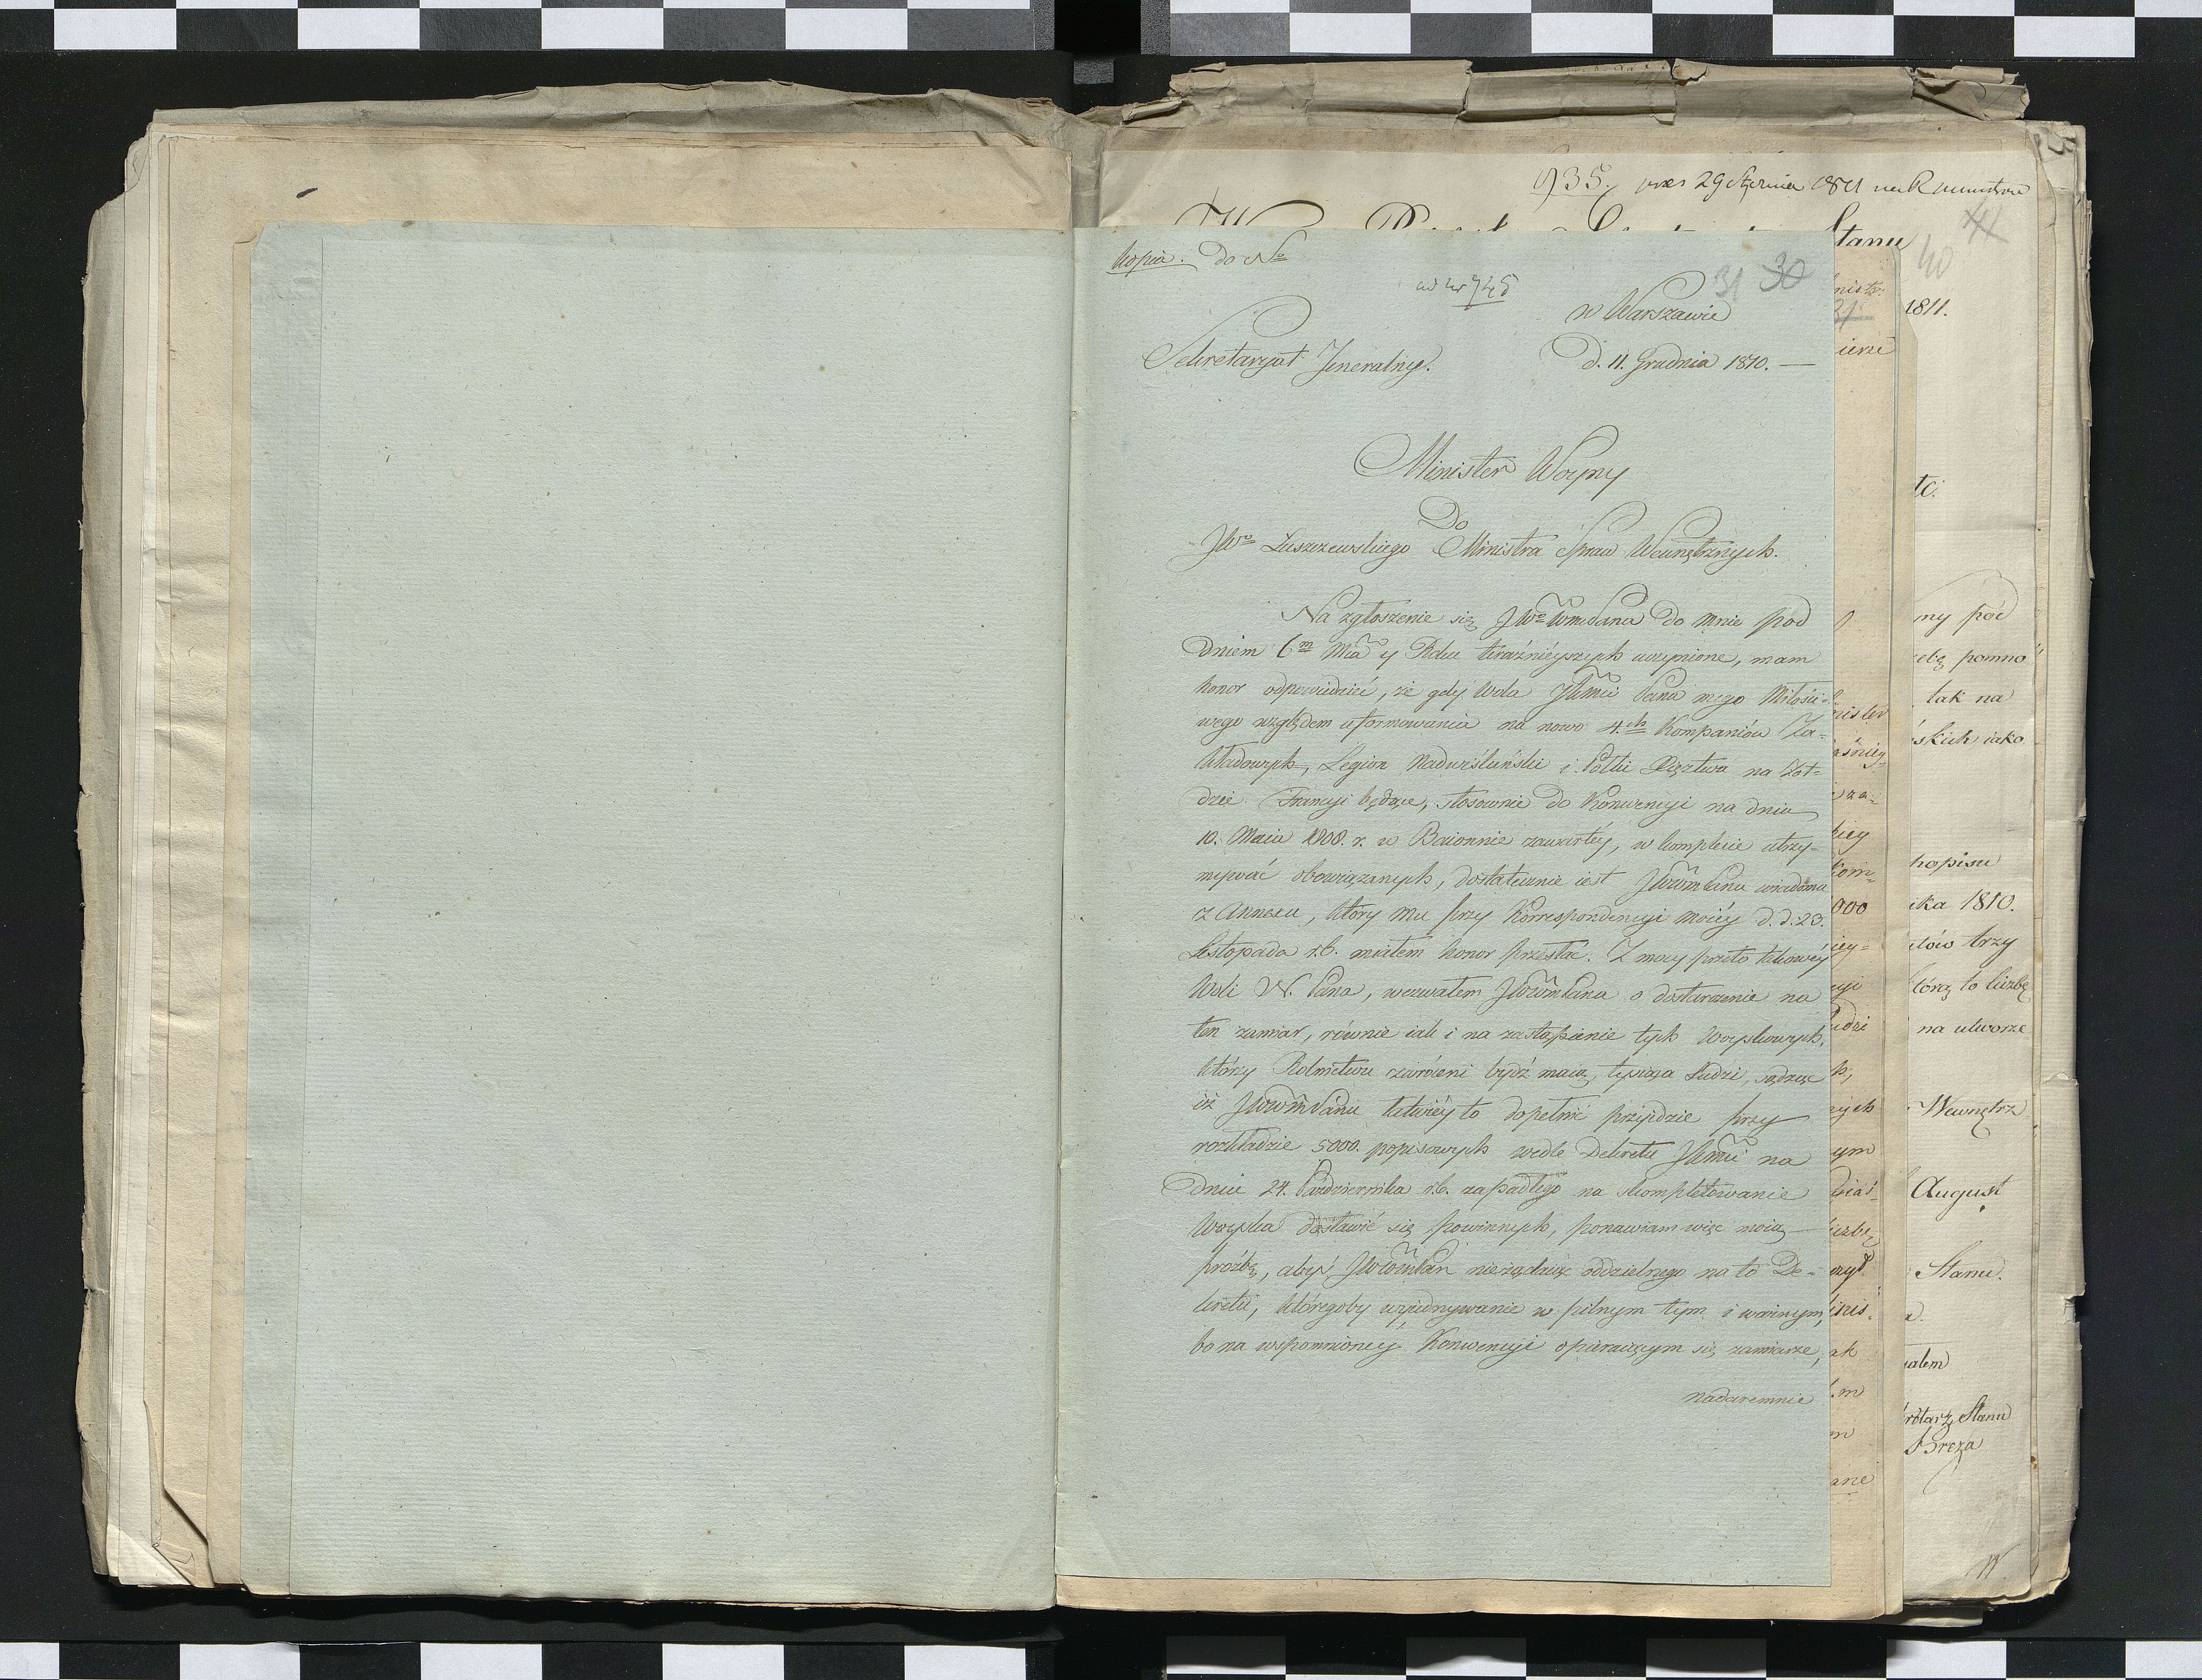 935. prez 29 Stycznia 1811 na R Ministrow
Stanu
41
40
1811.
Kopia. do No
ad nr 745
31 30
w Warszawie
Sekretaryat Jeneralny.
d. 11. Grudnia 1810. —
Minister Woyny
Do
JWo Łuszczewskiego Ministra Spraw Wewnętrznych.
Na zgłoszenie się JWo WmPana do mnie pod
Dniem 6m Mca y Roku teraźnieyszych uczynione, mam
honor odpowiedzieć, że gdy Wola JKMci Pana mego Miłości-
wego względem uformowania na nowo 4.ch Kompaniów Za-
kładowych, Legion Nadwiślański i Połki Xięztwa na Żoł-
dzie Francyi będące, stosownie do Konwencyi na dniu
10. Maia 1808. r. w Baionnie zawartéy, w komplecie utrzy-
mywać obowiązanych, dostatecznie iest JWWmPanu wiadoma
z Annexu, który mu przy Korrespondencyi moiéy d. d. 23.
Listopada r. b. miałem honor przesłać. Z mocy przeto takowéy
Woli N. Pana, wezwałem JWWmPana o dostarczenie na
ten zamiar, równie iak i na zastąpienie tych Woyskowych,
którzy Rolnictwu zwróceni bydź maią, tysiąca Ludzi, sądząc
iż JWWmPanu łatwiéy to dopełnić przyidzie przy
rozkładzie 5000. popisowych wedle Dekretu JKMci na
Dniu 24. Października r. b. zapadłego na skompletowanie
Woyska dostawić się powinnych, ponawiam więc moią
prozbę, abyś JWWmPan nieżądaiąc oddzielnego na to De-
kretu, któregoby wyiednywanie w pilnym tym i ważnym,
bo na wspomnionéy Konwencyi opieraiącym się zamiarze,
nadaremnie
my pod
tak na
skich iako
000
ika 1810.
tów trzy
którą to liczbę
na utworze
Wewnętrz
August
Stanu.
Breza